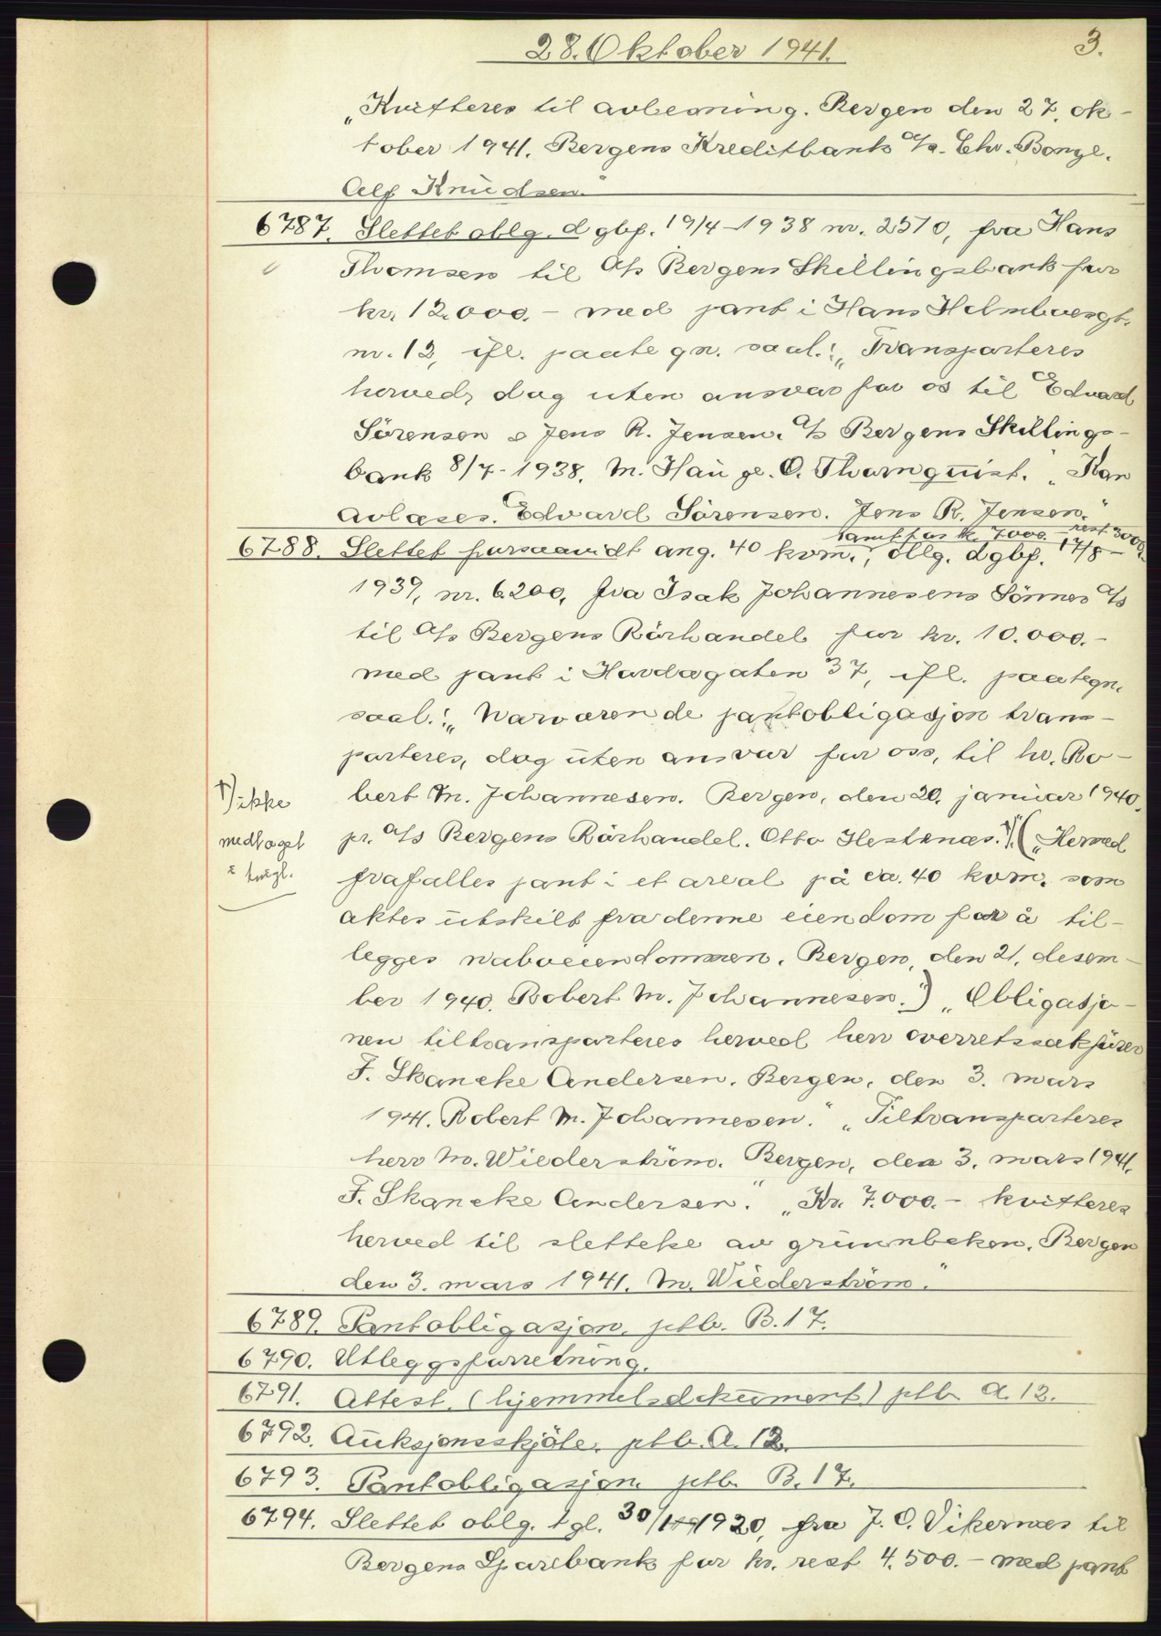 28. Oktober 1941.
3.
„Kvitteres til avlesning. Bergen den 27. ok-
tober 1941. Bergens Kreditbank A/s. Chr. Bonge.
Alf Knudsen."
6787. Slettet oblg. dgbf. 19/4-1938 nr. 2510, fra Hans
Thomsen til A/s Bergens Skillingsbank for
kr. 12.000.- med pant i Hans Holmboesgt.
nr. 12, ifl. paategn. saal.: „Transporteres
herved, dog uten ansvar for os til Edvard
Sörensen & Jens R. Jensen. A/s Bergens Skillings-
bank 8/7-1938. M. Hauge. O. Thornquist." „Kan
avlæses. Edvard Sörensen. Jens R. Jensen."
samt for kr. 7000.- rest 3000.
6788. Slettet forsaavidt ang. 40 kvm., oblg. dgbf. 17/8-
1939, nr. 6200, fra Isak Johannesens Sönner A/s
til A/s Bergens Rörhandel for kr. 10.000.-
med pant i Hardagaten 37, ifl. paategn.
saal.: „Nærværende pantobligasjon trans-
porteres, dog uten ansvar for oss, til hr. Ro-
bert M. Johannesen. Bergen, den 20. januar 1940.
pr. A/s Bergens Rörhandel. Otto Hestenæs." 1) („Herved
1) ikke
medtaget
i tingl.
frafalles pant i et areal på ca. 40 kvm. som
aktes utskilt fra denne eiendom for å til-
legges naboeiendommen. Bergen, den 21. desem-
ber 1940. Robert M. Johannesen.") „Obligasjo-
nen tiltransporteres herved herr overretssakförer
F. Skancke Andersen. Bergen, den 3. mars
1941. Robert M. Johannesen." „Tiltransporteres
herr M. Wiederström. Bergen, den 3. mars 1941.
F. Skancke Andersen." „Kr. 7.000.- kvitteres
herved til slettelse av grunnboken. Bergen
den 3. mars 1941. M. Wiederström."
6789. Pantobligasjon, ptb. B. 17.
6790. Utleggsforretning.
6791. Attest. (hjemmelsdokument) ptb. A. 12.
6792. Auksjonsskjöte, ptb. A. 12.
6793. Pantobligasjon ptb. B. 17.
6794. Slettet oblg. tgl. 30/ 1920, fra J. O. Vikernes til
Bergens Sparebank for kr. rest 4.500.- med pant